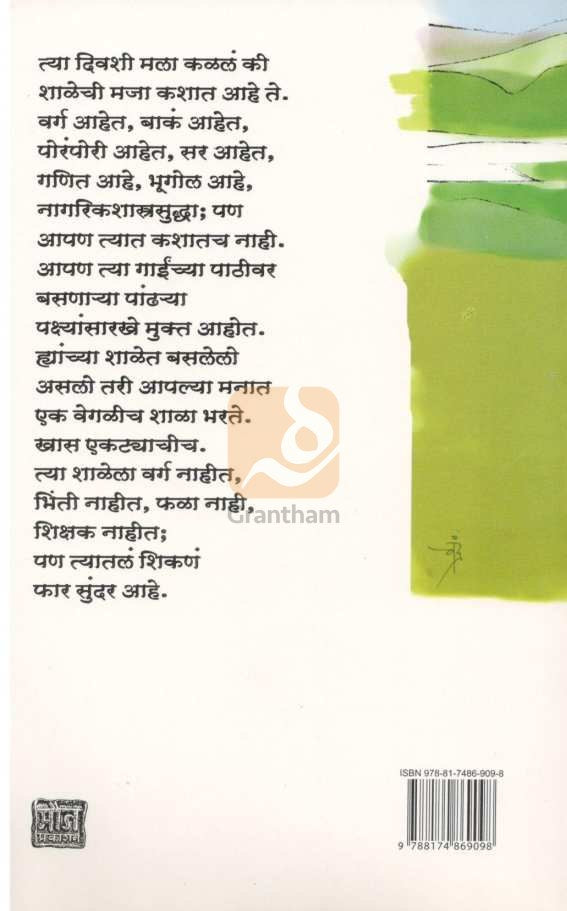 त्या दिवशी मला कळलं की
शाळेची मजा कशात आहे ते.
वर्ग आहेत, बाकं आहेत,
पोरंपोरी आहेत, सर आहेत,
गणित आहे, भूगोल आहे,
नागरिकशास्त्रसुद्धा; पण
आपण त्यात कशातच नाही.
आपण त्या गाईंच्या पाठीवर
बसणाऱ्या पांढऱ्या
पक्ष्यांसारखे मुक्त आहोत.
ह्यांच्या शाळेत बसलेलो
असलो तरी आपल्या मनात
एक वेगळीच शाळा भरते.
खास एकट्याचीच.
त्या शाळेला वर्ग नाहीत,
भिंती नाहीत, फळा नाही,
शिक्षक नाहीत;
पण त्यातलं शिकणं
फार सुंदर आहे.
Grantham
ISBN 978-81-7486-909-8
9 788174 869098
मौज
प्रकाशन